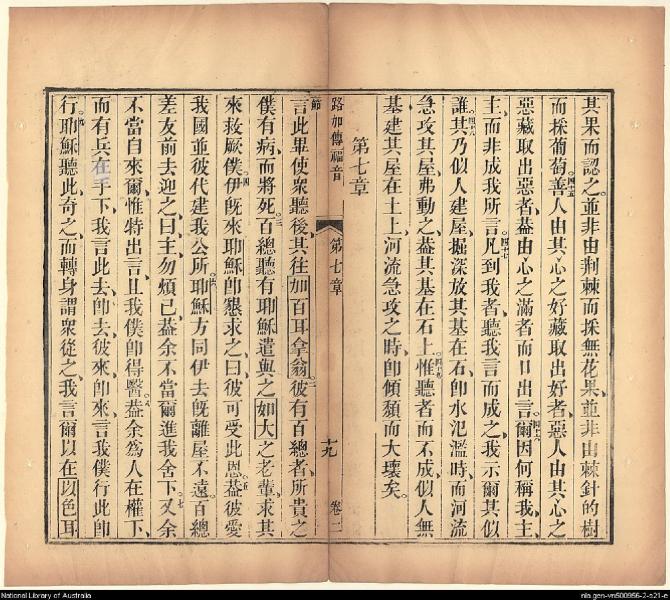 其果而認之並非由荆棘而採無花果並非由棘針的樹
而採葡萄四十五善人由其心之好藏取出好者惡人由其心之
惡藏取出惡者葢由心之滿者而口出言四十六爾因何稱我主
主而非成我所言四十七凡到我者聽我言而成之我示爾其似
誰四十八其乃似人建屋掘深放其基在石卽水氾濫時而河流
急攻其屋弗動之葢其基在石上四十九惟聽者而不成似人無
基建其屋在土上河流急攻之時卽傾頽而大壞矣
第七章
路加傳福音 第七章 十九 卷二
節一言此畢使衆聽後其往加百耳拿翁二彼有百總者所貴之
僕有病而將死三百總聽有耶穌遣與之如大之老輩求其
來救厥僕四伊旣來耶穌卽懇求之曰彼可受此恩五葢彼愛
我國並彼代建我公所六耶穌方同伊去旣離屋不遠百總
差友前去迎之曰主勿煩己葢余不當爾進我舍下七又余
不當自來爾惟特出言且我僕卽得醫八葢余爲人在權下
而有兵在手下我言此去卽去彼來卽來言我僕行此卽
行九耶穌聽此奇之而轉身謂衆從之我言爾以在以色耳
National Library of Australia
nla.gen-vn500956-2-s21-e